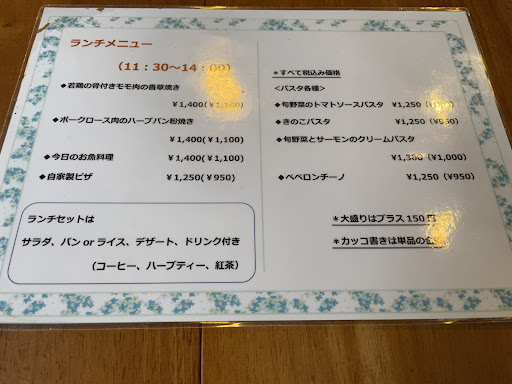 ランチメニュー
（11：30～14：00）
◆若鶏の骨付きモモ肉の香草焼き
￥1,400(￥1,100)
◆ポークロース肉のハーブパン粉焼き
￥1,400(￥1,100)
◆今日のお魚料理 ￥1,400(￥1,100)
◆自家製ピザ ￥1,250(￥950)
ランチセットは
サラダ、パン or ライス、デザート、ドリンク付き
（コーヒー、ハーブティー、紅茶）
＊すべて税込み価格
＜パスタ各種＞
◆旬野菜のトマトソースパスタ ￥1,250
◆きのこパスタ ￥1,250（￥950）
◆旬野菜とサーモンのクリームパスタ
￥1,300（￥1,000）
◆ペペロンチーノ ￥1,250（￥950）
＊大盛りはプラス 150 円
＊カッコ書きは単品の